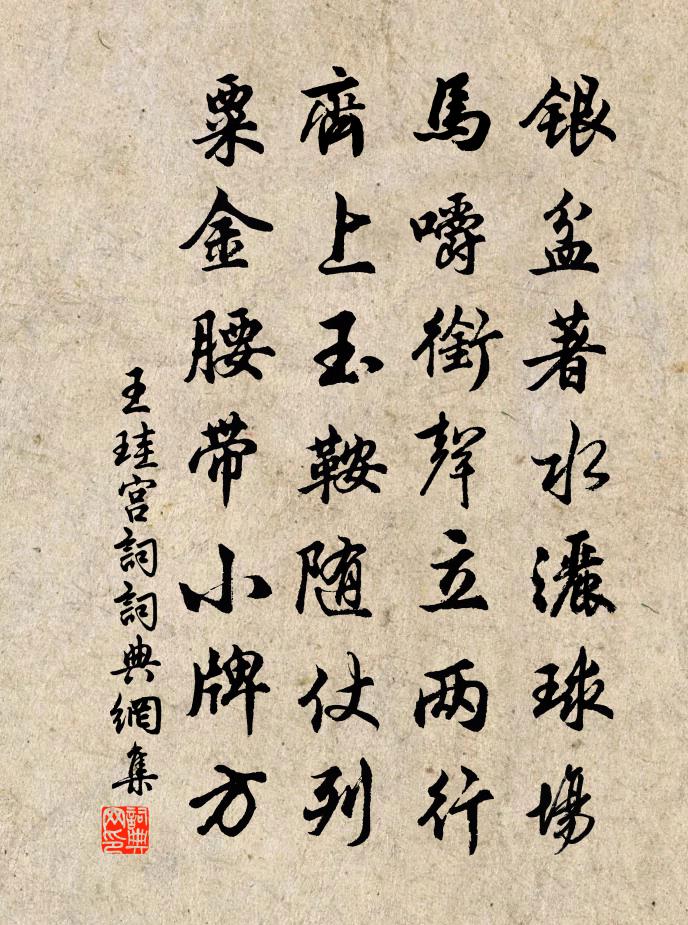 银盆著水灑球場
馬嚼銜聲立两行
齊上玉鞍随仗列
粟金腰带小牌方
王珪宫詞詞典網集
詞典网印